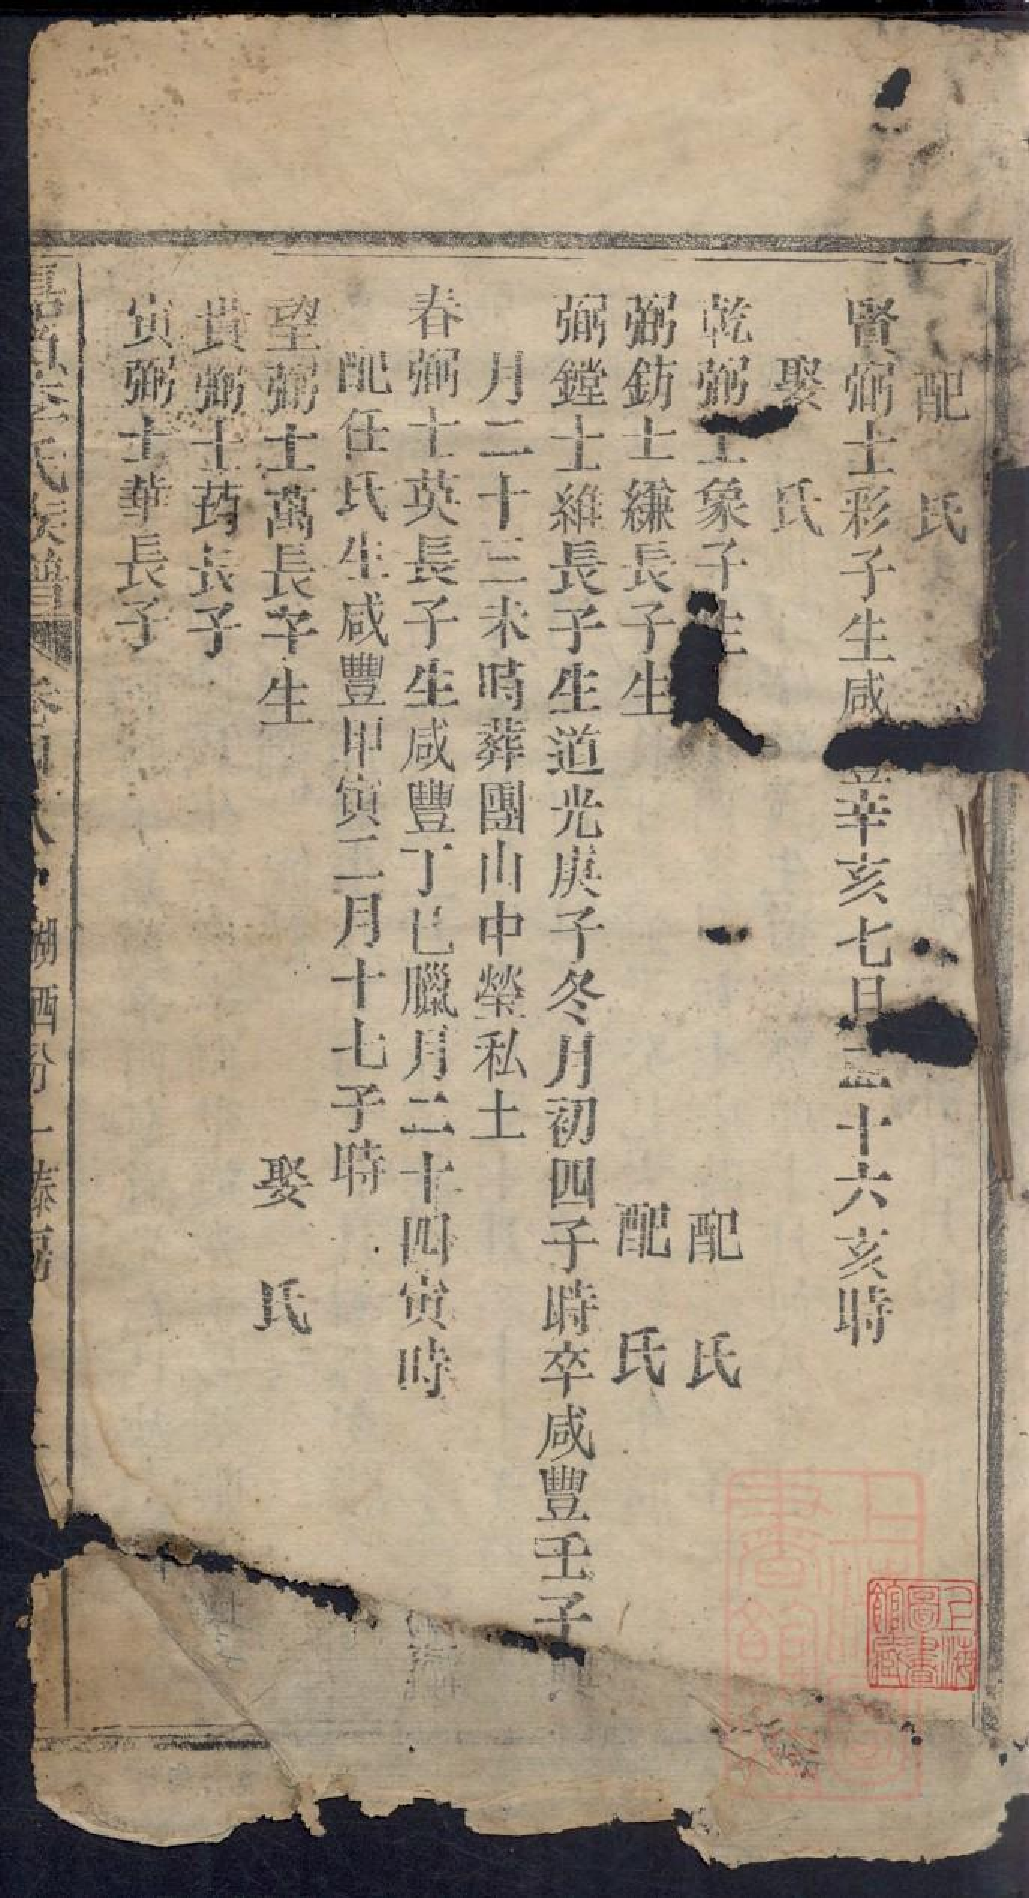 配 氏
賢弼士彩子生咸 辛亥七月 十六亥時
娶 氏
乾弼士象子生 配 氏
弼鈁士縑長子生 配 氏
弼鏜士維長子生道光庚子冬月初四子時卒咸豐壬子
月二十三未時葬團山中塋私土
春弼士英長子生咸豐丁巳臘月二十四寅時
配任氏生咸豐甲寅二月十七子時
望弼士萬長子生 娶 氏
貴弼士葯長子
寅弼士華長子
氏族譜 卷 湖西份
上海圖書館藏
上海圖書館藏